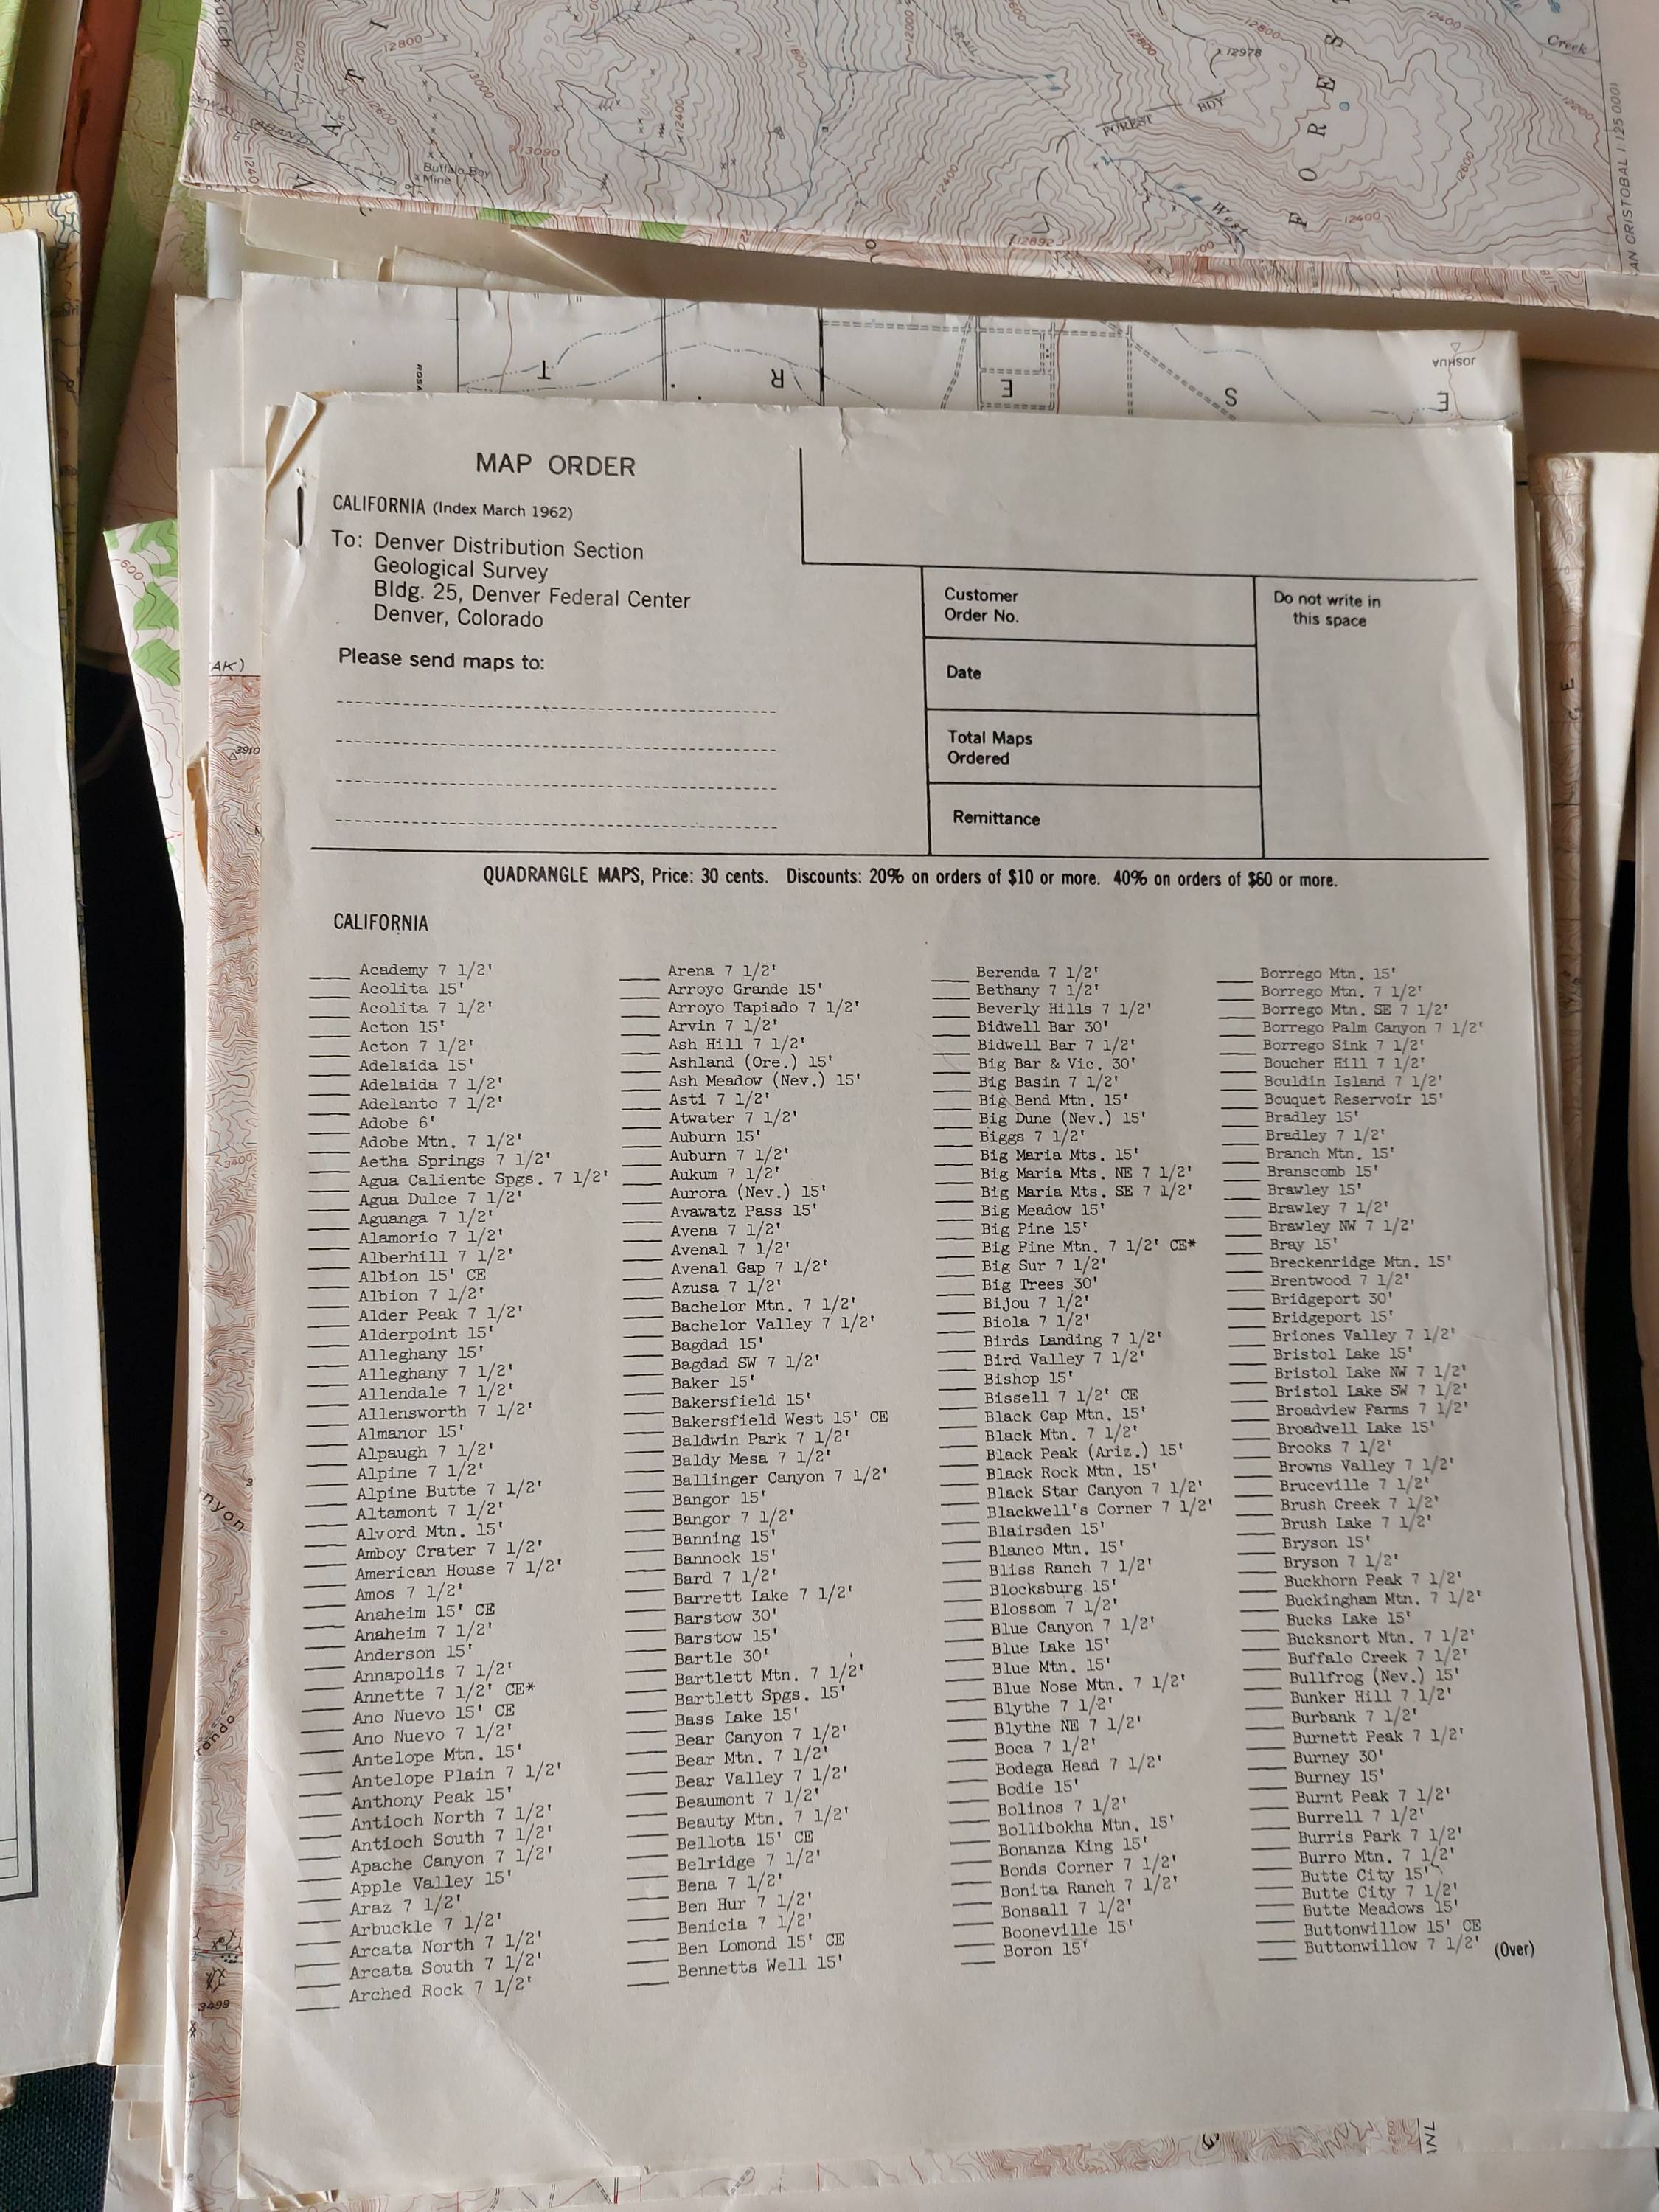 12800
12978
12400
12200
12600
13000
13090
Buffalo Boy
Mine
12400
FOREST BDY
West
Creek
F O R E S T
12892
12400
12600
12200
SAN CRISTOBAL 1 125 0001
T R E S E
ROSA
JOSHUA
MAP ORDER
CALIFORNIA (Index March 1962)
To: Denver Distribution Section
Geological Survey
Bldg. 25, Denver Federal Center
Denver, Colorado
Please send maps to:
Customer
Order No.
Date
Total Maps
Ordered
Remittance
Do not write in
this space
QUADRANGLE MAPS, Price: 30 cents. Discounts: 20% on orders of $10 or more. 40% on orders of $60 or more.
CALIFORNIA
Academy 7 1/2'
Acolita 15'
Acolita 7 1/2'
Acton 15'
Acton 7 1/2'
Adelaida 15'
Adelaida 7 1/2'
Adelanto 7 1/2'
Adobe 6'
Adobe Mtn. 7 1/2'
Aetha Springs 7 1/2'
Agua Caliente Spgs. 7 1/2'
Agua Dulce 7 1/2'
Aguanga 7 1/2'
Alamorio 7 1/2'
Alberhill 7 1/2'
Albion 15' CE
Albion 7 1/2'
Alder Peak 7 1/2'
Alderpoint 15'
Alleghany 15'
Alleghany 7 1/2'
Allendale 7 1/2'
Allensworth 7 1/2'
Almanor 15'
Alpaugh 7 1/2'
Alpine 7 1/2'
Alpine Butte 7 1/2'
Altamont 7 1/2'
Alvord Mtn. 15'
Amboy Crater 7 1/2'
American House 7 1/2'
Amos 7 1/2'
Anaheim 15' CE
Anaheim 7 1/2'
Anderson 15'
Annapolis 7 1/2'
Annette 7 1/2' CE*
Ano Nuevo 15' CE
Ano Nuevo 7 1/2'
Antelope Mtn. 15'
Antelope Plain 7 1/2'
Anthony Peak 15'
Antioch North 7 1/2'
Antioch South 7 1/2'
Apache Canyon 7 1/2'
Apple Valley 15'
Araz 7 1/2'
Arbuckle 7 1/2'
Arcata North 7 1/2'
Arcata South 7 1/2'
Arched Rock 7 1/2'
Arena 7 1/2'
Arroyo Grande 15'
Arroyo Tapiado 7 1/2'
Arvin 7 1/2'
Ash Hill 7 1/2'
Ashland (Ore.) 15'
Ash Meadow (Nev.) 15'
Asti 7 1/2'
Atwater 7 1/2'
Auburn 15'
Auburn 7 1/2'
Aukum 7 1/2'
Aurora (Nev.) 15'
Avawatz Pass 15'
Avena 7 1/2'
Avenal 7 1/2'
Avenal Gap 7 1/2'
Azusa 7 1/2'
Bachelor Mtn. 7 1/2'
Bachelor Valley 7 1/2'
Bagdad 15'
Bagdad SW 7 1/2'
Baker 15'
Bakersfield 15'
Bakersfield West 15' CE
Baldwin Park 7 1/2'
Baldy Mesa 7 1/2'
Ballinger Canyon 7 1/2'
Bangor 15'
Bangor 7 1/2'
Banning 15'
Bannock 15'
Bard 7 1/2'
Barrett Lake 7 1/2'
Barstow 30'
Barstow 15'
Bartle 30'
Bartlett Mtn. 7 1/2'
Bartlett Spgs. 15'
Bass Lake 15'
Bear Canyon 7 1/2'
Bear Mtn. 7 1/2'
Bear Valley 7 1/2'
Beaumont 7 1/2'
Beauty Mtn. 7 1/2'
Bellota 15' CE
Belridge 7 1/2'
Bena 7 1/2'
Ben Hur 7 1/2'
Benicia 7 1/2'
Ben Lomond 15' CE
Bennetts Well 15'
Berenda 7 1/2'
Bethany 7 1/2'
Beverly Hills 7 1/2'
Bidwell Bar 30'
Bidwell Bar 7 1/2'
Big Bar & Vic. 30'
Big Basin 7 1/2'
Big Bend Mtn. 15'
Big Dune (Nev.) 15'
Biggs 7 1/2'
Big Maria Mts. 15'
Big Maria Mts. NE 7 1/2'
Big Maria Mts. SE 7 1/2'
Big Meadow 15'
Big Pine 15'
Big Pine Mtn. 7 1/2' CE*
Big Sur 7 1/2'
Big Trees 30'
Bijou 7 1/2'
Biola 7 1/2'
Birds Landing 7 1/2'
Bird Valley 7 1/2'
Bishop 15'
Bissell 7 1/2' CE
Black Cap Mtn. 15'
Black Mtn. 7 1/2'
Black Peak (Ariz.) 15'
Black Rock Mtn. 15'
Black Star Canyon 7 1/2'
Blackwell's Corner 7 1/2'
Blairsden 15'
Blanco Mtn. 15'
Bliss Ranch 7 1/2'
Blocksburg 15'
Blossom 7 1/2'
Blue Canyon 7 1/2'
Blue Lake 15'
Blue Mtn. 15'
Blue Nose Mtn. 7 1/2'
Blythe 7 1/2'
Blythe NE 7 1/2'
Boca 7 1/2'
Bodega Head 7 1/2'
Bodie 15'
Bolinos 7 1/2'
Bollibokha Mtn. 15'
Bonanza King 15'
Bonds Corner 7 1/2'
Bonita Ranch 7 1/2'
Bonsall 7 1/2'
Booneville 15'
Boron 15'
Borrego Mtn. 15'
Borrego Mtn. 7 1/2'
Borrego Mtn. SE 7 1/2'
Borrego Palm Canyon 7 1/2'
Borrego Sink 7 1/2'
Boucher Hill 7 1/2'
Bouldin Island 7 1/2'
Bouquet Reservoir 15'
Bradley 15'
Bradley 7 1/2'
Branch Mtn. 15'
Branscomb 15'
Brawley 15'
Brawley 7 1/2'
Brawley NW 7 1/2'
Bray 15'
Breckenridge Mtn. 15'
Brentwood 7 1/2'
Bridgeport 30'
Bridgeport 15'
Briones Valley 7 1/2'
Bristol Lake 15'
Bristol Lake NW 7 1/2'
Bristol Lake SW 7 1/2'
Broadview Farms 7 1/2'
Broadwell Lake 15'
Brooks 7 1/2'
Browns Valley 7 1/2'
Bruceville 7 1/2'
Brush Creek 7 1/2'
Brush Lake 7 1/2'
Bryson 15'
Bryson 7 1/2'
Buckhorn Peak 7 1/2'
Buckingham Mtn. 7 1/2'
Bucks Lake 15'
Bucksnort Mtn. 7 1/2'
Buffalo Creek 7 1/2'
Bullfrog (Nev.) 15'
Bunker Hill 7 1/2'
Burbank 7 1/2'
Burnett Peak 7 1/2'
Burney 30'
Burney 15'
Burnt Peak 7 1/2'
Burrell 7 1/2'
Burris Park 7 1/2'
Burro Mtn. 7 1/2'
Butte City 15'
Butte City 7 1/2'
Butte Meadows 15'
Buttonwillow 15' CE
Buttonwillow 7 1/2'
(Over)
AK)
3910
3400
nyon
3499